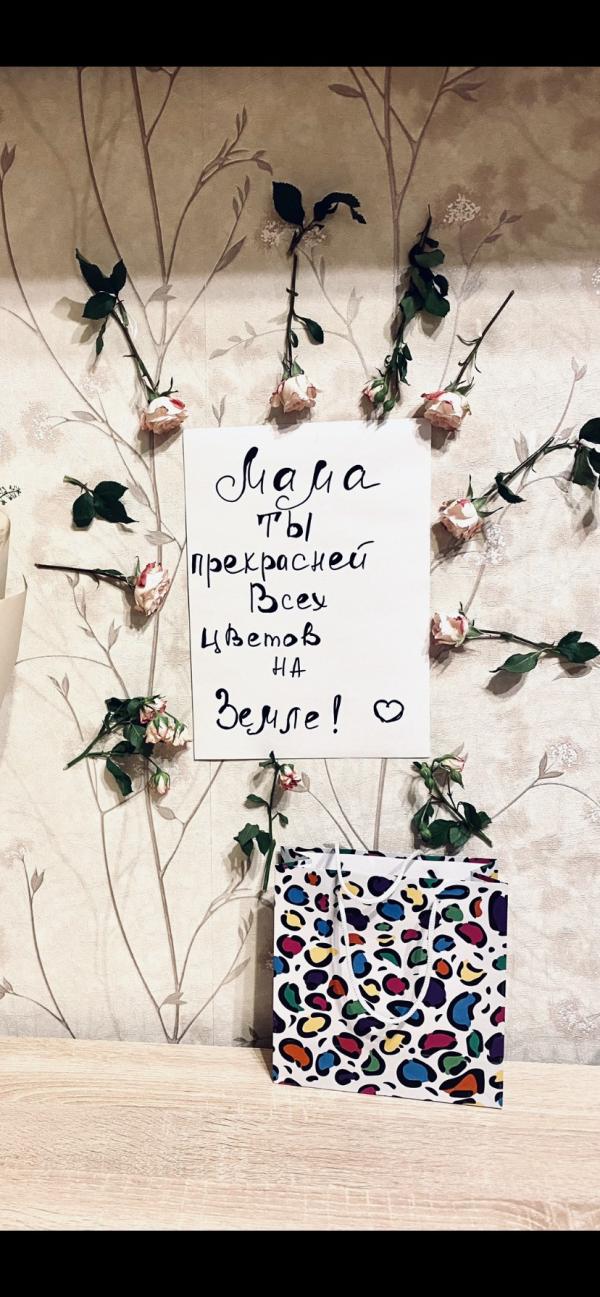 Мама
ты
прекрасней
Всех
цветов
НА
Земле! ♡